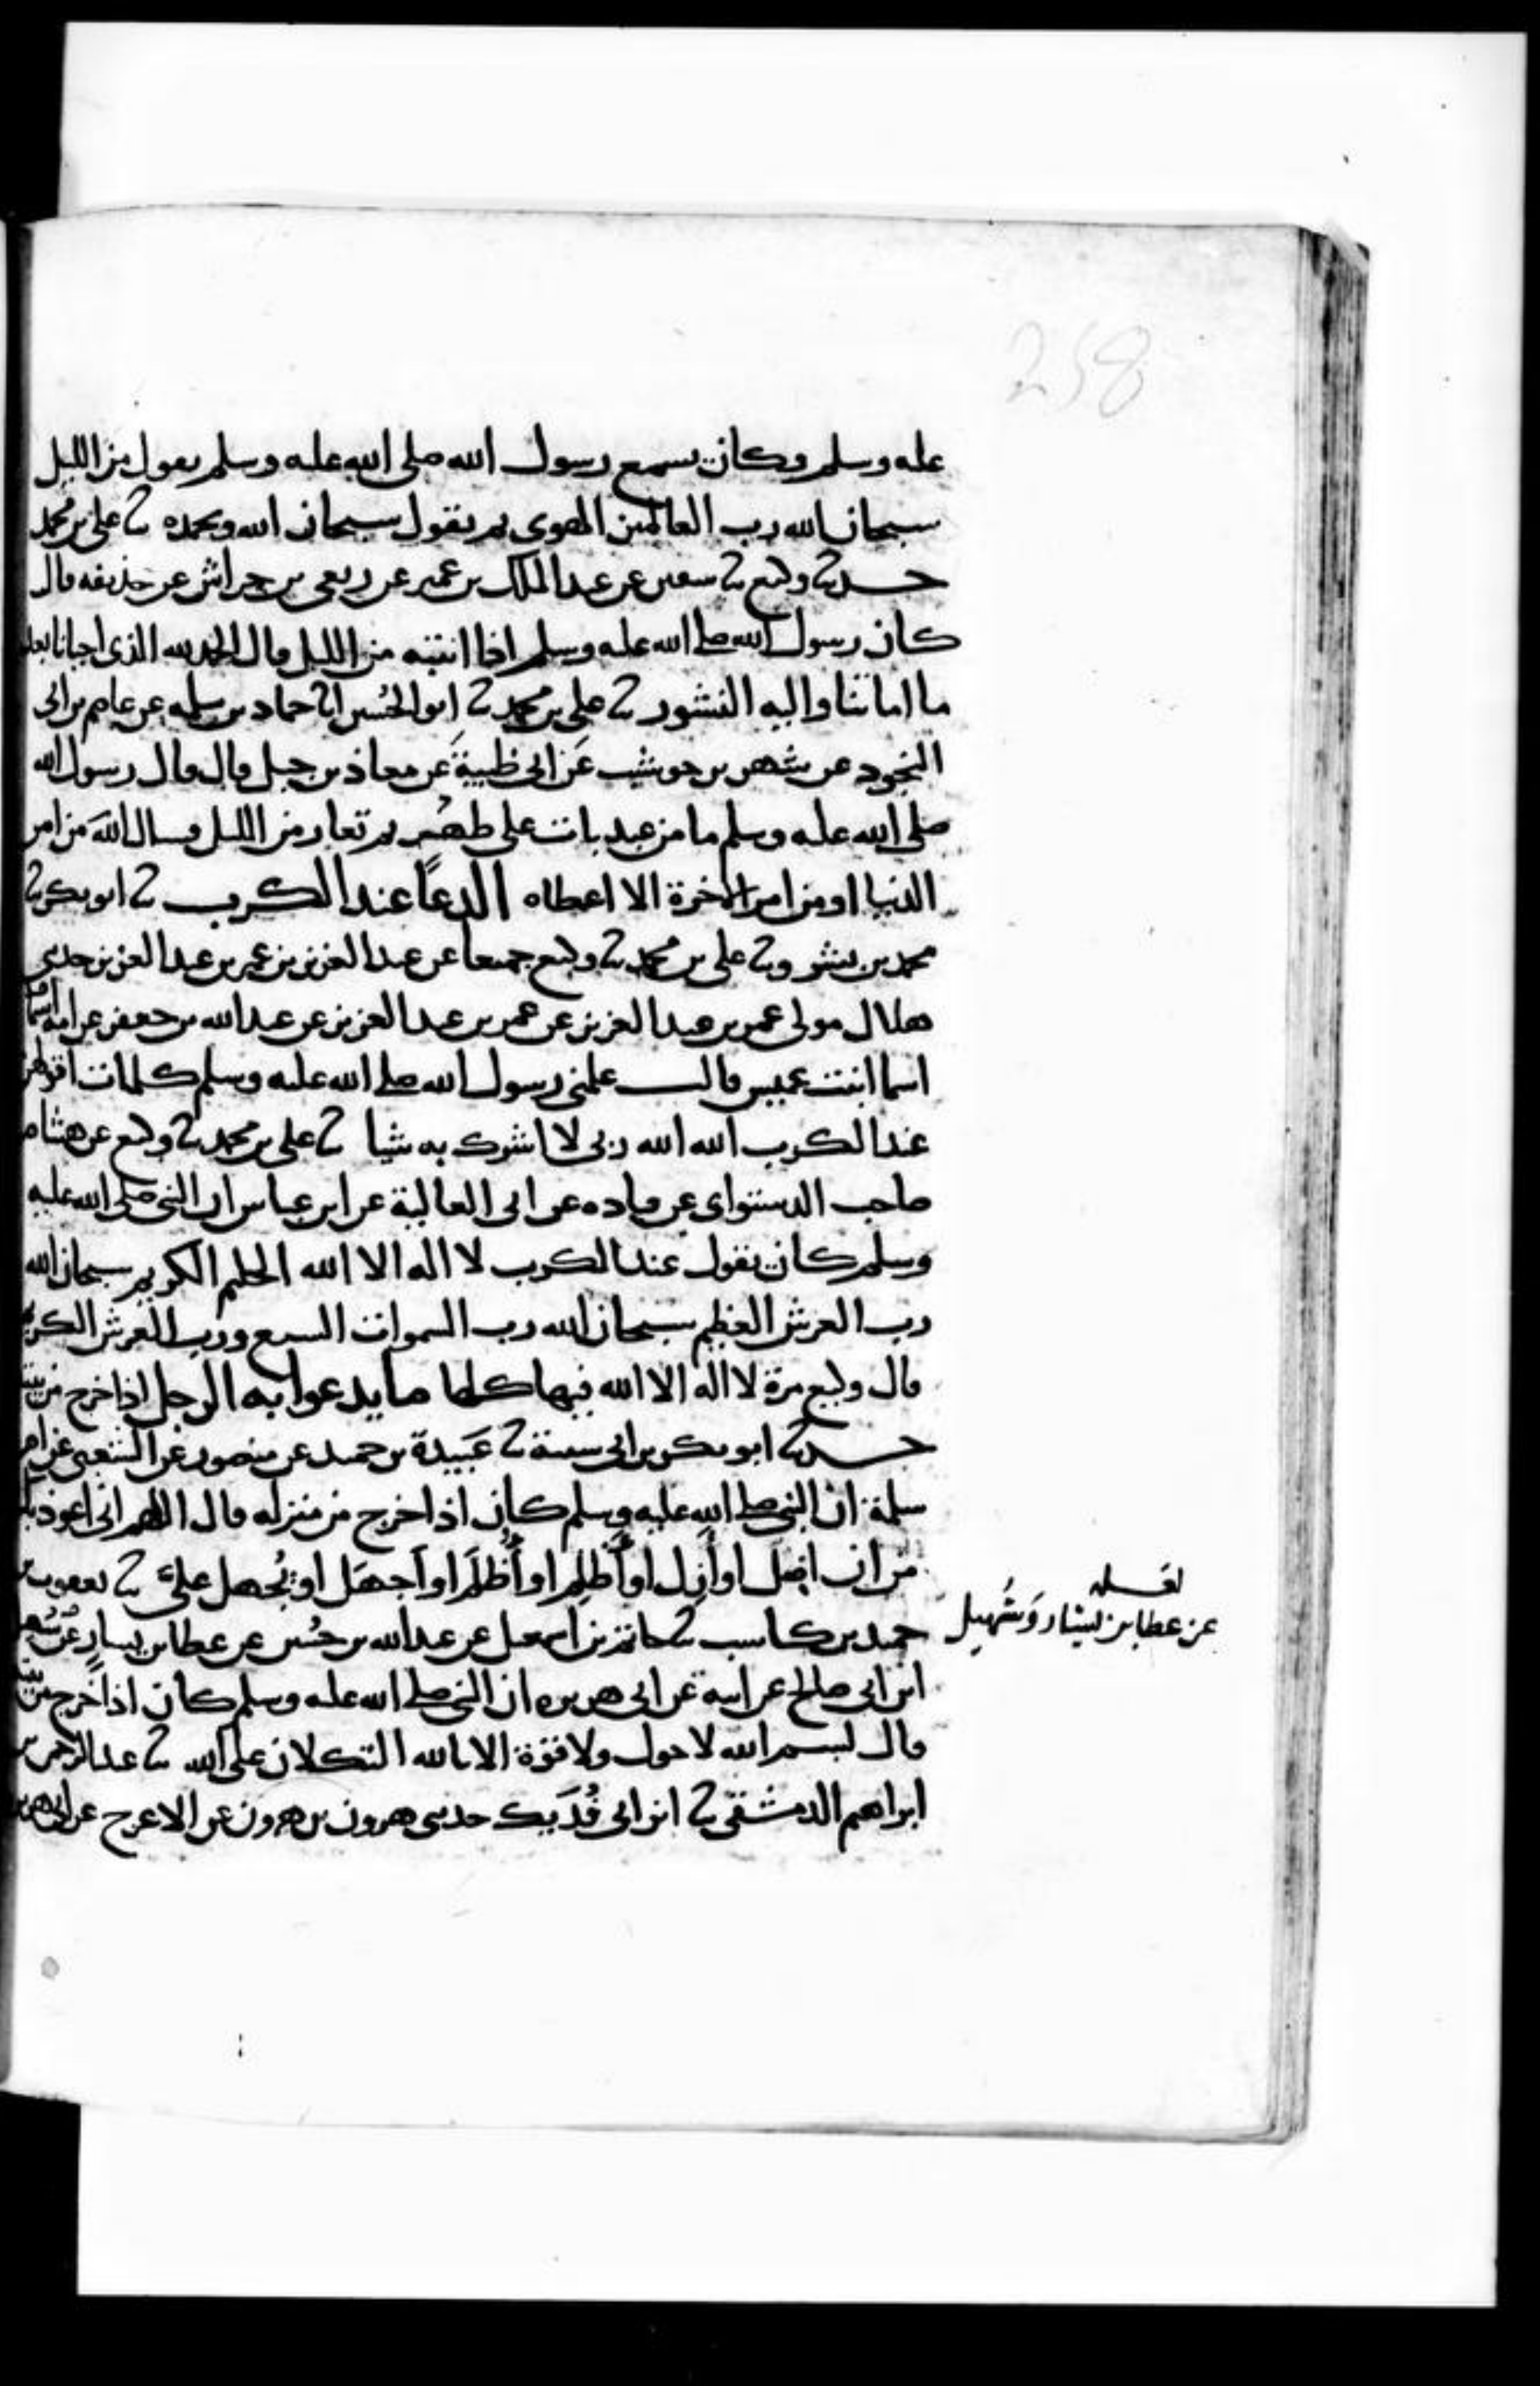 258
عليه وسلم وكان يسمع رسول الله صلى الله عليه وسلم يقول من الليل
سبحان الله رب العالمين الهوى ثم يقول سبحان الله وبحمده ثنا علي بن محمد
حدثنا وكيع ثنا سفين عن عبد الملك بن عمير عن ربعي بن حراش عن حذيفه قال
كان رسول الله صلى الله عليه وسلم اذا انتبه من الليل قال الحمد لله الذي احيانا بعد
ما اماتنا واليه النشور ثنا علي بن محمد ثنا ابو الحسين انا حماد بن سلمه عن عاصم بن ابي
النجود عن شهر بن حوشب عن ابي ظبية عن معاذ بن جبل قال قال رسول الله
صلى الله عليه وسلم ما من عبد بات على طهور ثم تعار من الليل فسال الله من امر
الدنيا او من امر الاخرة الا اعطاه الدعا عند الكرب ثنا ابو بكر ثنا
محمد بن بشر وثنا علي بن محمد ثنا وكيع جميعا عن عبد العزيز بن عمر بن عبد العزيز حدثني
هلال مولى عمر بن عبد العزيز عن عمر بن عبد العزيز عن عبد الله بن جعفر عن امه اسما
اسما ابنت عميس قالت علمني رسول الله صلى الله عليه وسلم كلمات اقولهن
عند الكرب الله الله ربي لا اشرك به شيا ثنا علي بن محمد ثنا وكيع عن هشام
صاحب الدستواى عن قتاده عن ابي العالية عن ابن عباس ان النبي صلى الله عليه
وسلم كان يقول عند الكرب لا اله الا الله الحليم الكريم سبحان الله
رب العرش العظيم سبحان الله رب السموات السبع ورب العرش الكريم
قال وكيع مرة لا اله الا الله فيها كلها ما يدعوا به الرجل اذا خرج من بيته
حدثنا ابو بكر بن ابي شيبة ثنا عَبيدة بن حميد عن منصور عن الشعبي عن ام
سلمة ان النبي صلى الله عليه وسلم كان اذا خرج من منزله قال اللهم اني اعوذ بك
من ان اضل او أزل او أَظلِم او أُظلَم او اَجهَل او يُجهل عليَّ ثنا يعقوب بن
حميد بن كاسب ثنا حاتم بن اسمعيل عن عبد الله بن حُسين عن عطا بن يسار عن سُهيل
لعله
عن عطا بن يسار وَسُهيل
ابن ابي صالح عن ابيه عن ابي هريره ان النبي صلى الله عليه وسلم كان اذا خرج من بيته
قال بسم الله لا حول ولا قوة الا بالله التكلان على الله ثنا عبد الرحمن بن
ابراهيم الدمشقي ثنا ابن ابي فُدَيك حدثني هرون بن هرون عن الاعرج عن ابي هريره